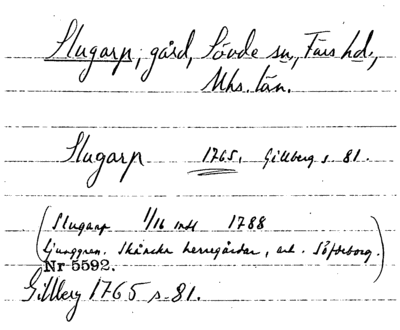 Slugarp, gård, Sövde sn, Färs hd,
Mhs. län.
Slugarp 1765. Gillberg s. 81.
(Slugarp 1/16 mtl 1788
Ljunggren. Skånska herregårdar, art. Söfdeborg.)
Nr 5592.
Gillberg 1765 s. 81.